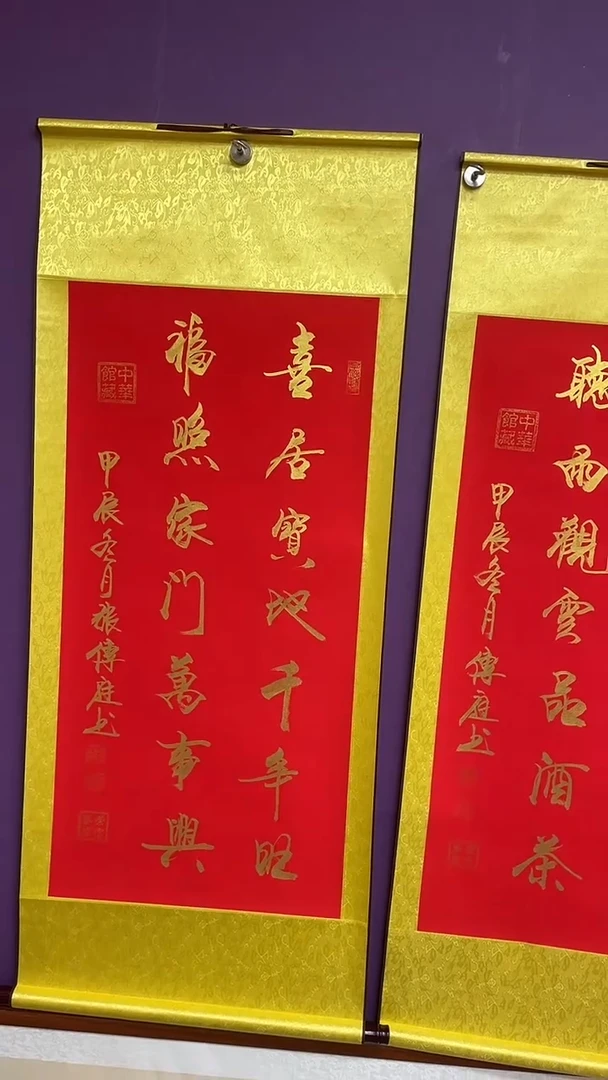 喜居寶地千年旺
福照家門萬事興
中華館藏
甲辰冬月張傳庭书
聽雨觀雲品酒茶
中華館藏
甲辰冬月傳庭书